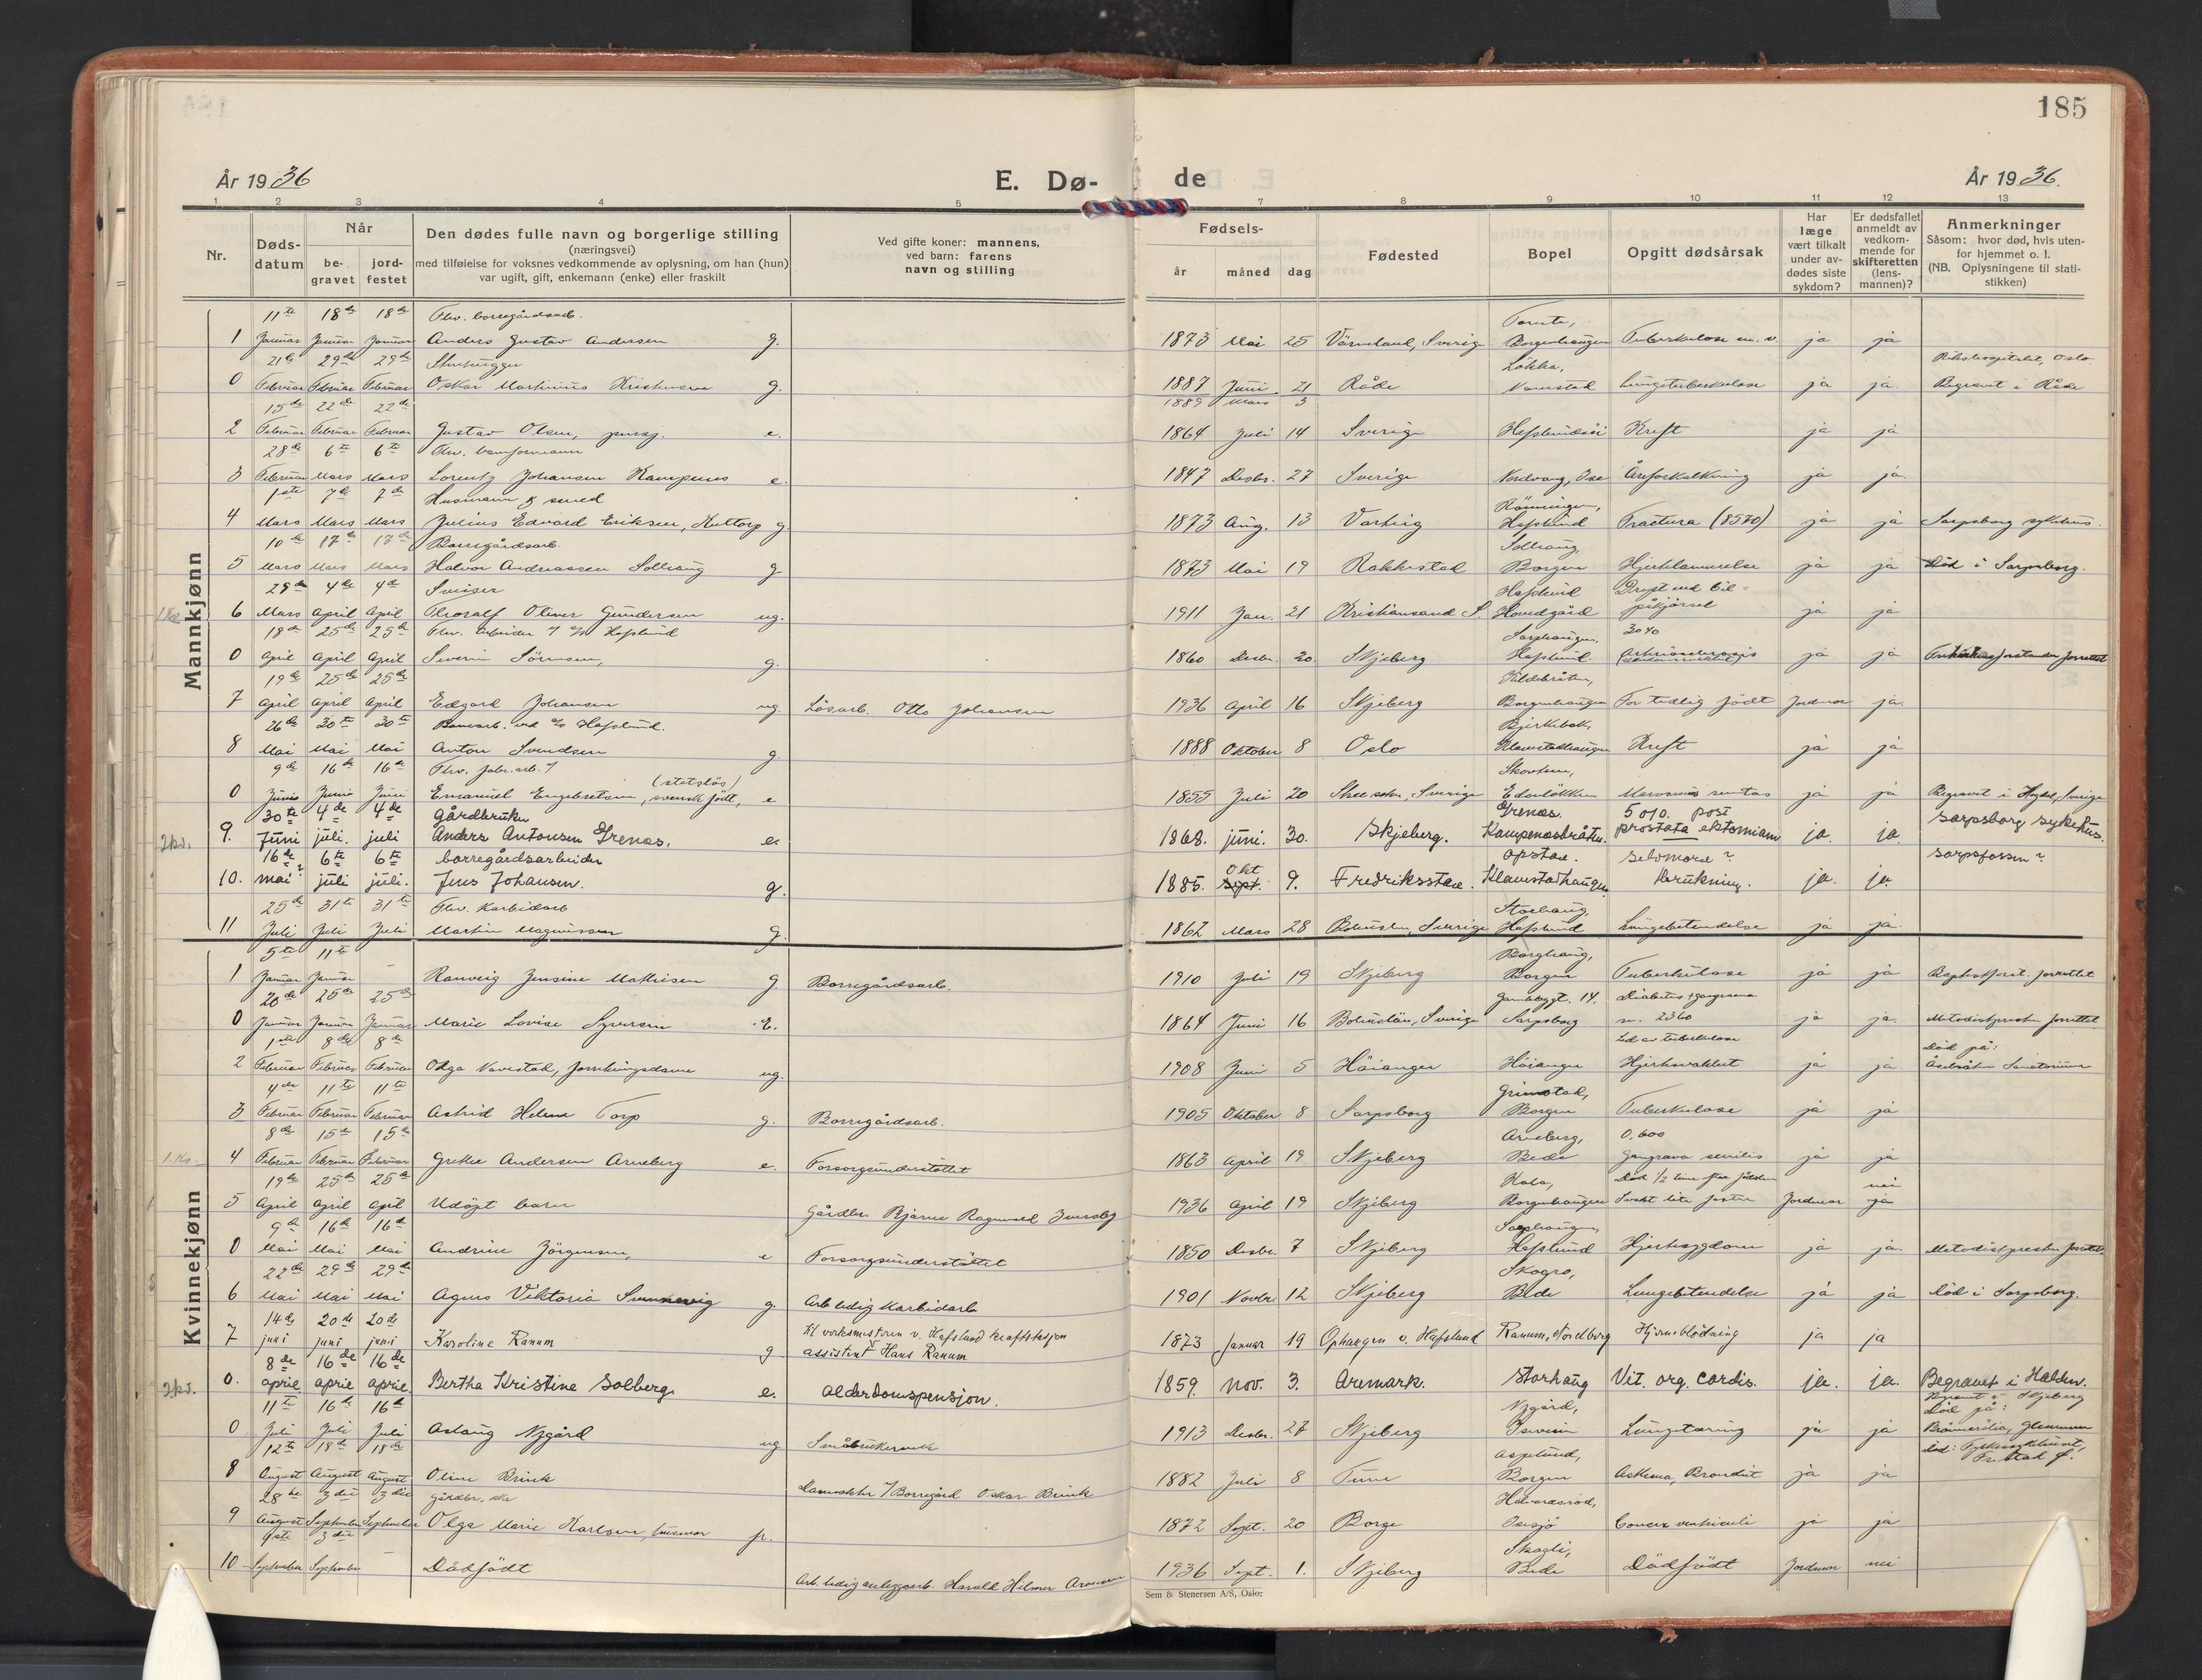 185
År 1936
E. Dø-
de
År 1936.
1 2 3 4 5 7 8 9 10 11 12 13
Nr.
Døds-
datum
Når
be-
gravet
jord-
festet
Den dødes fulle navn og borgerlige stilling
(næringsvei)
med tilføielse for voksnes vedkommende av oplysning, om han (hun)
var ugift, gift, enkemann (enke) eller fraskilt
Ved gifte koner: mannens,
ved barn: farens
navn og stilling
Fødsels-
år måned dag
Fødested
Bopel
Opgitt dødsårsak
Har
læge
vært tilkalt
under av-
dødes siste
sykdom?
Er dødsfallet
anmeldt av
vedkom-
mende for
skifteretten
(lens-
mannen)?
Anmerkninger
Såsom: hvor død, hvis uten-
for hjemmet o. l.
(NB. Oplysningene til stati-
stikken)
Mannkjønn
11te 18de 18de Fhv. borregårdsarb.
1 Januar Januar Januar Anders Gustav Andersen g. 1873 Mai 25 Värmland, Sverige Borgenhaugen Tuberkulose ja ja
21de 29de 29de Stenhugger Løkka, Rikshospitalet, Oslo
0 Februar Februar Februar Oskar Martinius Kristiansen g. 1887 Juni 21 Råde Navestad Lungetuberkulose ja ja. Begravet i Råde
15de 22de 22de 1889 Mars 3
2 Februar Februar Februar Gustav Olsen, pensj. e. 1864 Juli 14 Sverige Hafslundsøi Kreft ja ja
28de 6te 6te Fhv. baneformann
3 Februar Mars Mars Lorentz Johansen Kampenes e. 1847 Desbr. 27 Sverige Nordvang, Ise Åreforkalkning ja ja.
1ste 7de 7de Husmann & smed Rönningen,
4 Mars Mars Mars Julius Edvard Eriksen, Kultorp g 1873 Aug. 13 Varteig Hafslund Fractura (8570) ja ja Sarpsborg sykehus.
10de 17de 17de Borregårdsarb. Solhaug,
5 Mars Mars Mars Halvor Andreassen Solhaug g 1873 Mai 19 Rakkestad Borgen Hjertelammelse ja ja Död i Sarpsborg.
29de 4de 4de Sveiser Hafslund Drept ved bil-
1 Ko. 6 Mars April April Thoralf Oliver Gundersen ug. 1911 Jan. 21 Kristiansand S. Hovedgård påkjørsel ja ja
18de 25de 25de Fhv. arbeider v/ a/s Hafslund Sarphaugen, 3040
0 April April April Severin Sörensen, g. 1860 Desbr. 20 Skjeberg Hafslund. Arteriosclerosis ja ja forrettet
19de 25de 25de
7 April April April Edgard Johansen ug. Løsarb. Otto Johansen 1936 April 16 Skjeberg Borgenhaugen For tidlig født Jordmor ja.
26de 30te 30te Banearb. ved a/s Hafslund. Bjerkebak,
8 Mai Mai Mai Anton Svendsen g 1888 Oktober 8 Oslo Klavestadhaugen Kreft ja ja
9de 16de 16de Fhv. fabr.arb. (statsløs) Skovheim,
0 Juni Juni Juni Emanuel Engebretsen, svensk født, e 1855 Juli 20 Skee sokn, Sverige Edenløkken Marasmus senilis ja ja Begravet i Hogdal, Sverige
30te 4de 4de gårdbruker Grenås. 5010. post
2 kv. 9. Juni juli. juli Anders Antonsen Grenås. e. 1868. juni. 30. Skjeberg. Kampenesbråten. prostata ektomiam ja. ja. Sarpsborg sykehus.
16de? 6te 6te borregårdsarbeider opstad. Selvmord? Sarpsfossen?
10. mai juli juli. Jens Johansen. g. 1885. sept. Okt 9. Fredriksstad. Klavestadhaugen Drukning. ja. ja.
25de 31te 31te Fhv. Karbidarb Storhaug,
11 Juli Juli Juli Martin Magnussen g. 1862 Mars 28 Bohuslen, Sverige Hafslund Lungebetendelse ja ja
Kvinnekjønn
5te 11te Borghaug,
1 Januar Januar - Ranveig Jensine Mathisen g Borregårdsarb. 1910 Juli 19 Skjeberg Borgen Tuberkulose ja ja forrettet
20de 25de 25de Gamlebygt. 14. Diabetes + gangrena
0 Januar Januar Januar Marie Lovise Syversen E. 1864 Juni 16 Bohuslän, Sverige Sarpsborg n. 2360 ja ja. Metodistpresten forrettet
1ste 8de 8de Led av tuberkulose Død på:
2 Februar Februar Februar Olga Navestad, forretningsdame ug. 1908 Juni 5 Höianger Höianger Hjerteslag ja ja. Åsebråten Sanatorium
4de 11te 11te Grimstad,
3 Februar Februar Februar Astrid Helene Torp g. Borregårdsarb. 1905 Oktober 8 Sarpsborg Borgen Tuberkulose ja ja
8de 15de 15de Arneberg, 0,600
1. Ko. 4 Februar Februar Februar Grethe Andersen Arneberg e. Forsorgsunderstöttet 1863 April 19 Skjeberg Bede Gangrena senilis ja ja
19de 25de 25de Død 1/2 time efter fødselen nei
5 April April April Udöpt barn Gårdbr. Bjarne Ragnvald Iversby 1936 April 19 Skjeberg Borgenhaugen Svakt lite foster Jordmor ja
9de 16de 16de Sarphaugen,
0 Mai Mai Mai Andrine Jörgensen, e Forsorgsunderstöttet 1850 Desbr. 7 Skjeberg Hafslund Hjertesygdom ja ja. Metodistpresten forrettet
22de 29de 29de Skogro,
6 Mai Mai Mai Agnes Viktoria g. Arb.ledig Karbidarb 1901 Novbr. 12 Skjeberg Bede Lungebetendelse ja ja Död i Sarpsborg.
14de 20de 20de til verksmesteren v. Hafslund kraftstasjon
7 juni juni juni Karoline Ranum g assistent Hans Ranum 1873 Januar 19 Ophaugen v. Hafslund Ranum, Nordberg Hjerneblødning ja ja
8de 16de 16de
2 kv. 0. april april april. Bertha Kristine Solberg. e. alderdomspensjon. 1859. nov. 3. Aremark. Storhaug Vit. org. cordis. ja. ja. Begravet i Halden.
11te 16de 16de Nygård, Begravet i Skjeberg
Död på:
0 Juli Juli Juli Aslaug Nygård ug Småbruker 1913 Desbr. 27 Skjeberg Lungetæring ja ja Glemmen
12te 18de 18de Asplund, Fr.stad
8 August August August Oline Brink Borregård Oskar Brink 1882 Juli 8 Tune Borgen Asthma, Bronchit ja ja
28de 3die 3die gårdbr. Halvardsrød,
9 August September September Olga Marie Karlsen, husmor fr. 1872 Sept. 20 Borge Isesjø Cancer ventriculi ja ja
1ste 3die Skogli,
10 September September - Dødfödt Arb.ledig anleggsarb. Harald Hilmer Aronsen 1936 Sept. 1. Skjeberg Bede Dödfödt Jordmor nei
Sem & Stenersen A/S, Oslo.